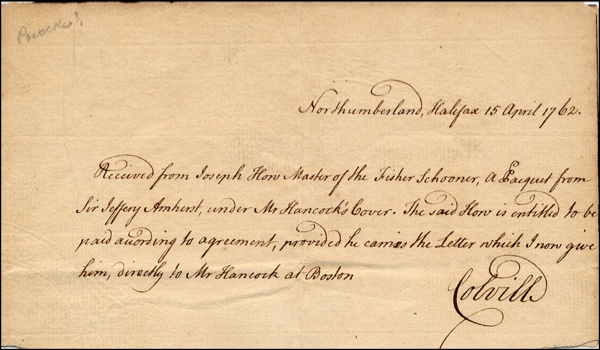 Northumberland, Halifax 15 April 1762.
Received from Joseph How Master of the Fisher Schooner, a Pacquet from
Sir Jeffery Amherst, under Mr Hancock's Cover. The said How is entitled to be
paid acording to agreement, provided he carries the Letter which I now give
him, directly to Mr Hancock at Boston
Colvill